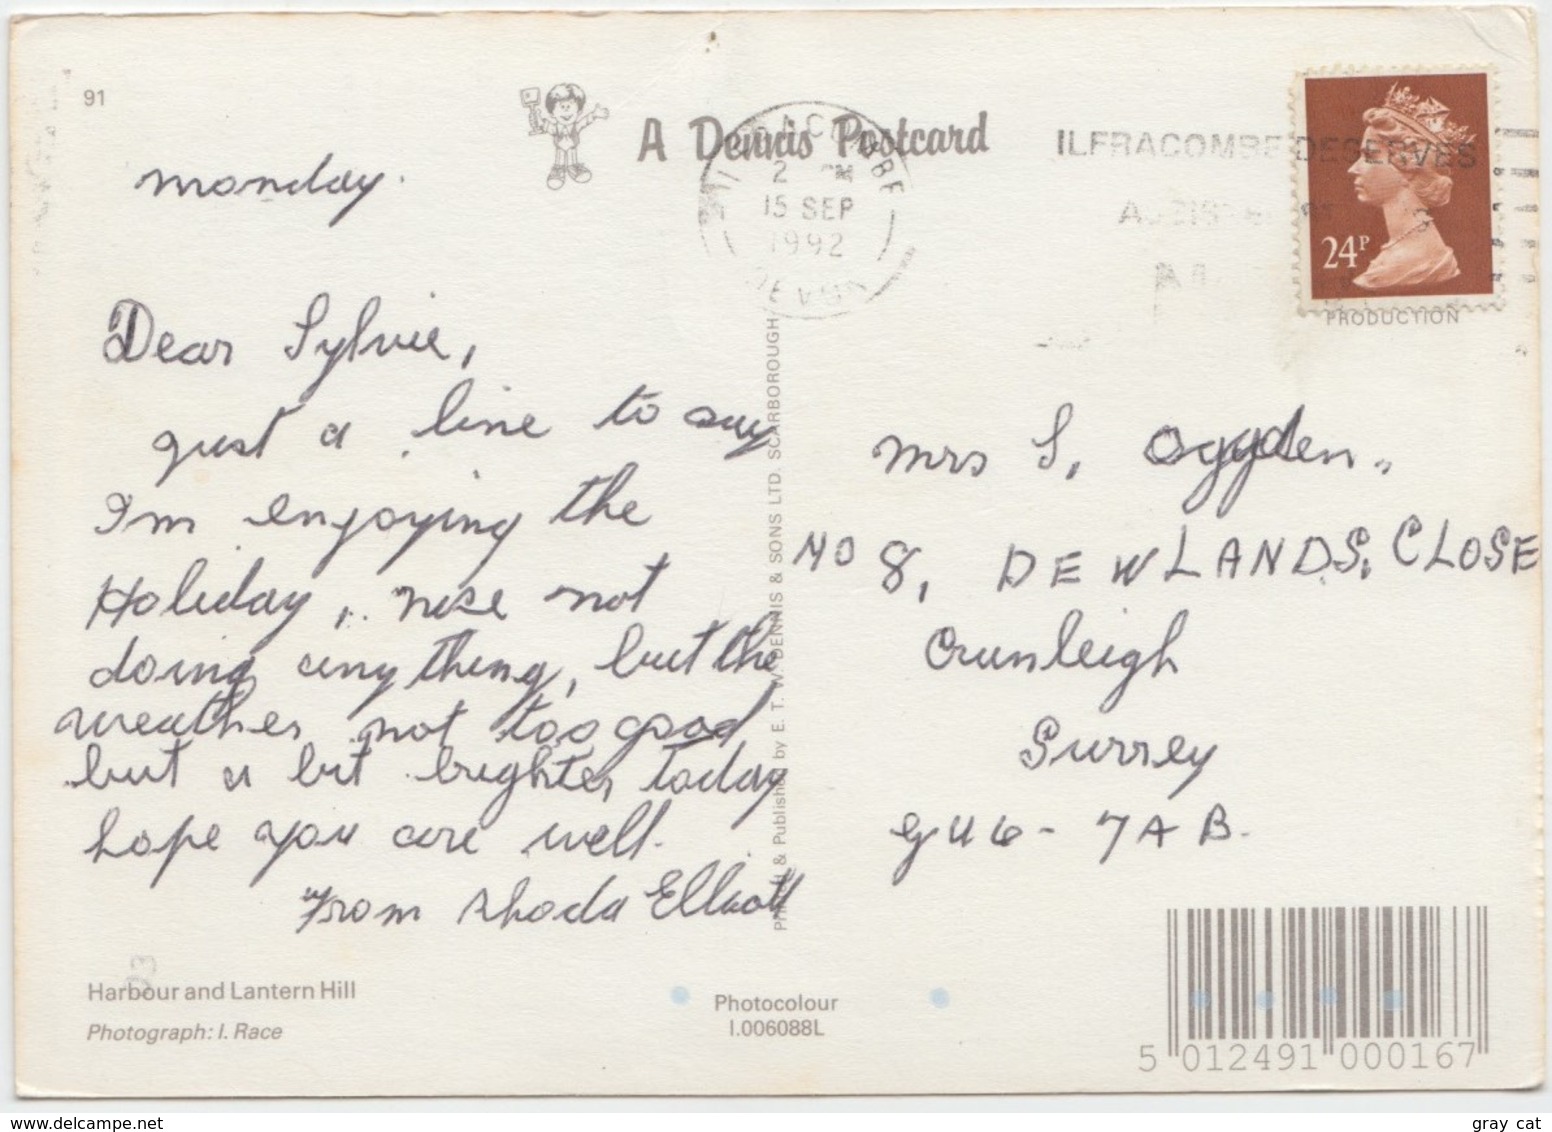 91
A Dennis Postcard
2 PM
15 SEP
1992
DEVON
ILFRACOMBE DESERVES
24P
PRODUCTION
monday.
Dear Sylvie,
just a line to say
I'm enjoying the
Holiday, nise not
doing any thing, but the
weather not too good
but a bit brighter today
hope you are well.
From Rhoda Elliott
Mrs S. Ogyden.
NO 8, DEWLANDS, CLOSE
Crunleigh
Surrey
GU6-7AB.
Printed & Published by E. T. W. DENNIS & SONS LTD. SCARBOROUGH
93
Harbour and Lantern Hill
Photograph: I. Race
Photocolour
I.006088L
5 012491 000167
www.delcampe.net
gray cat